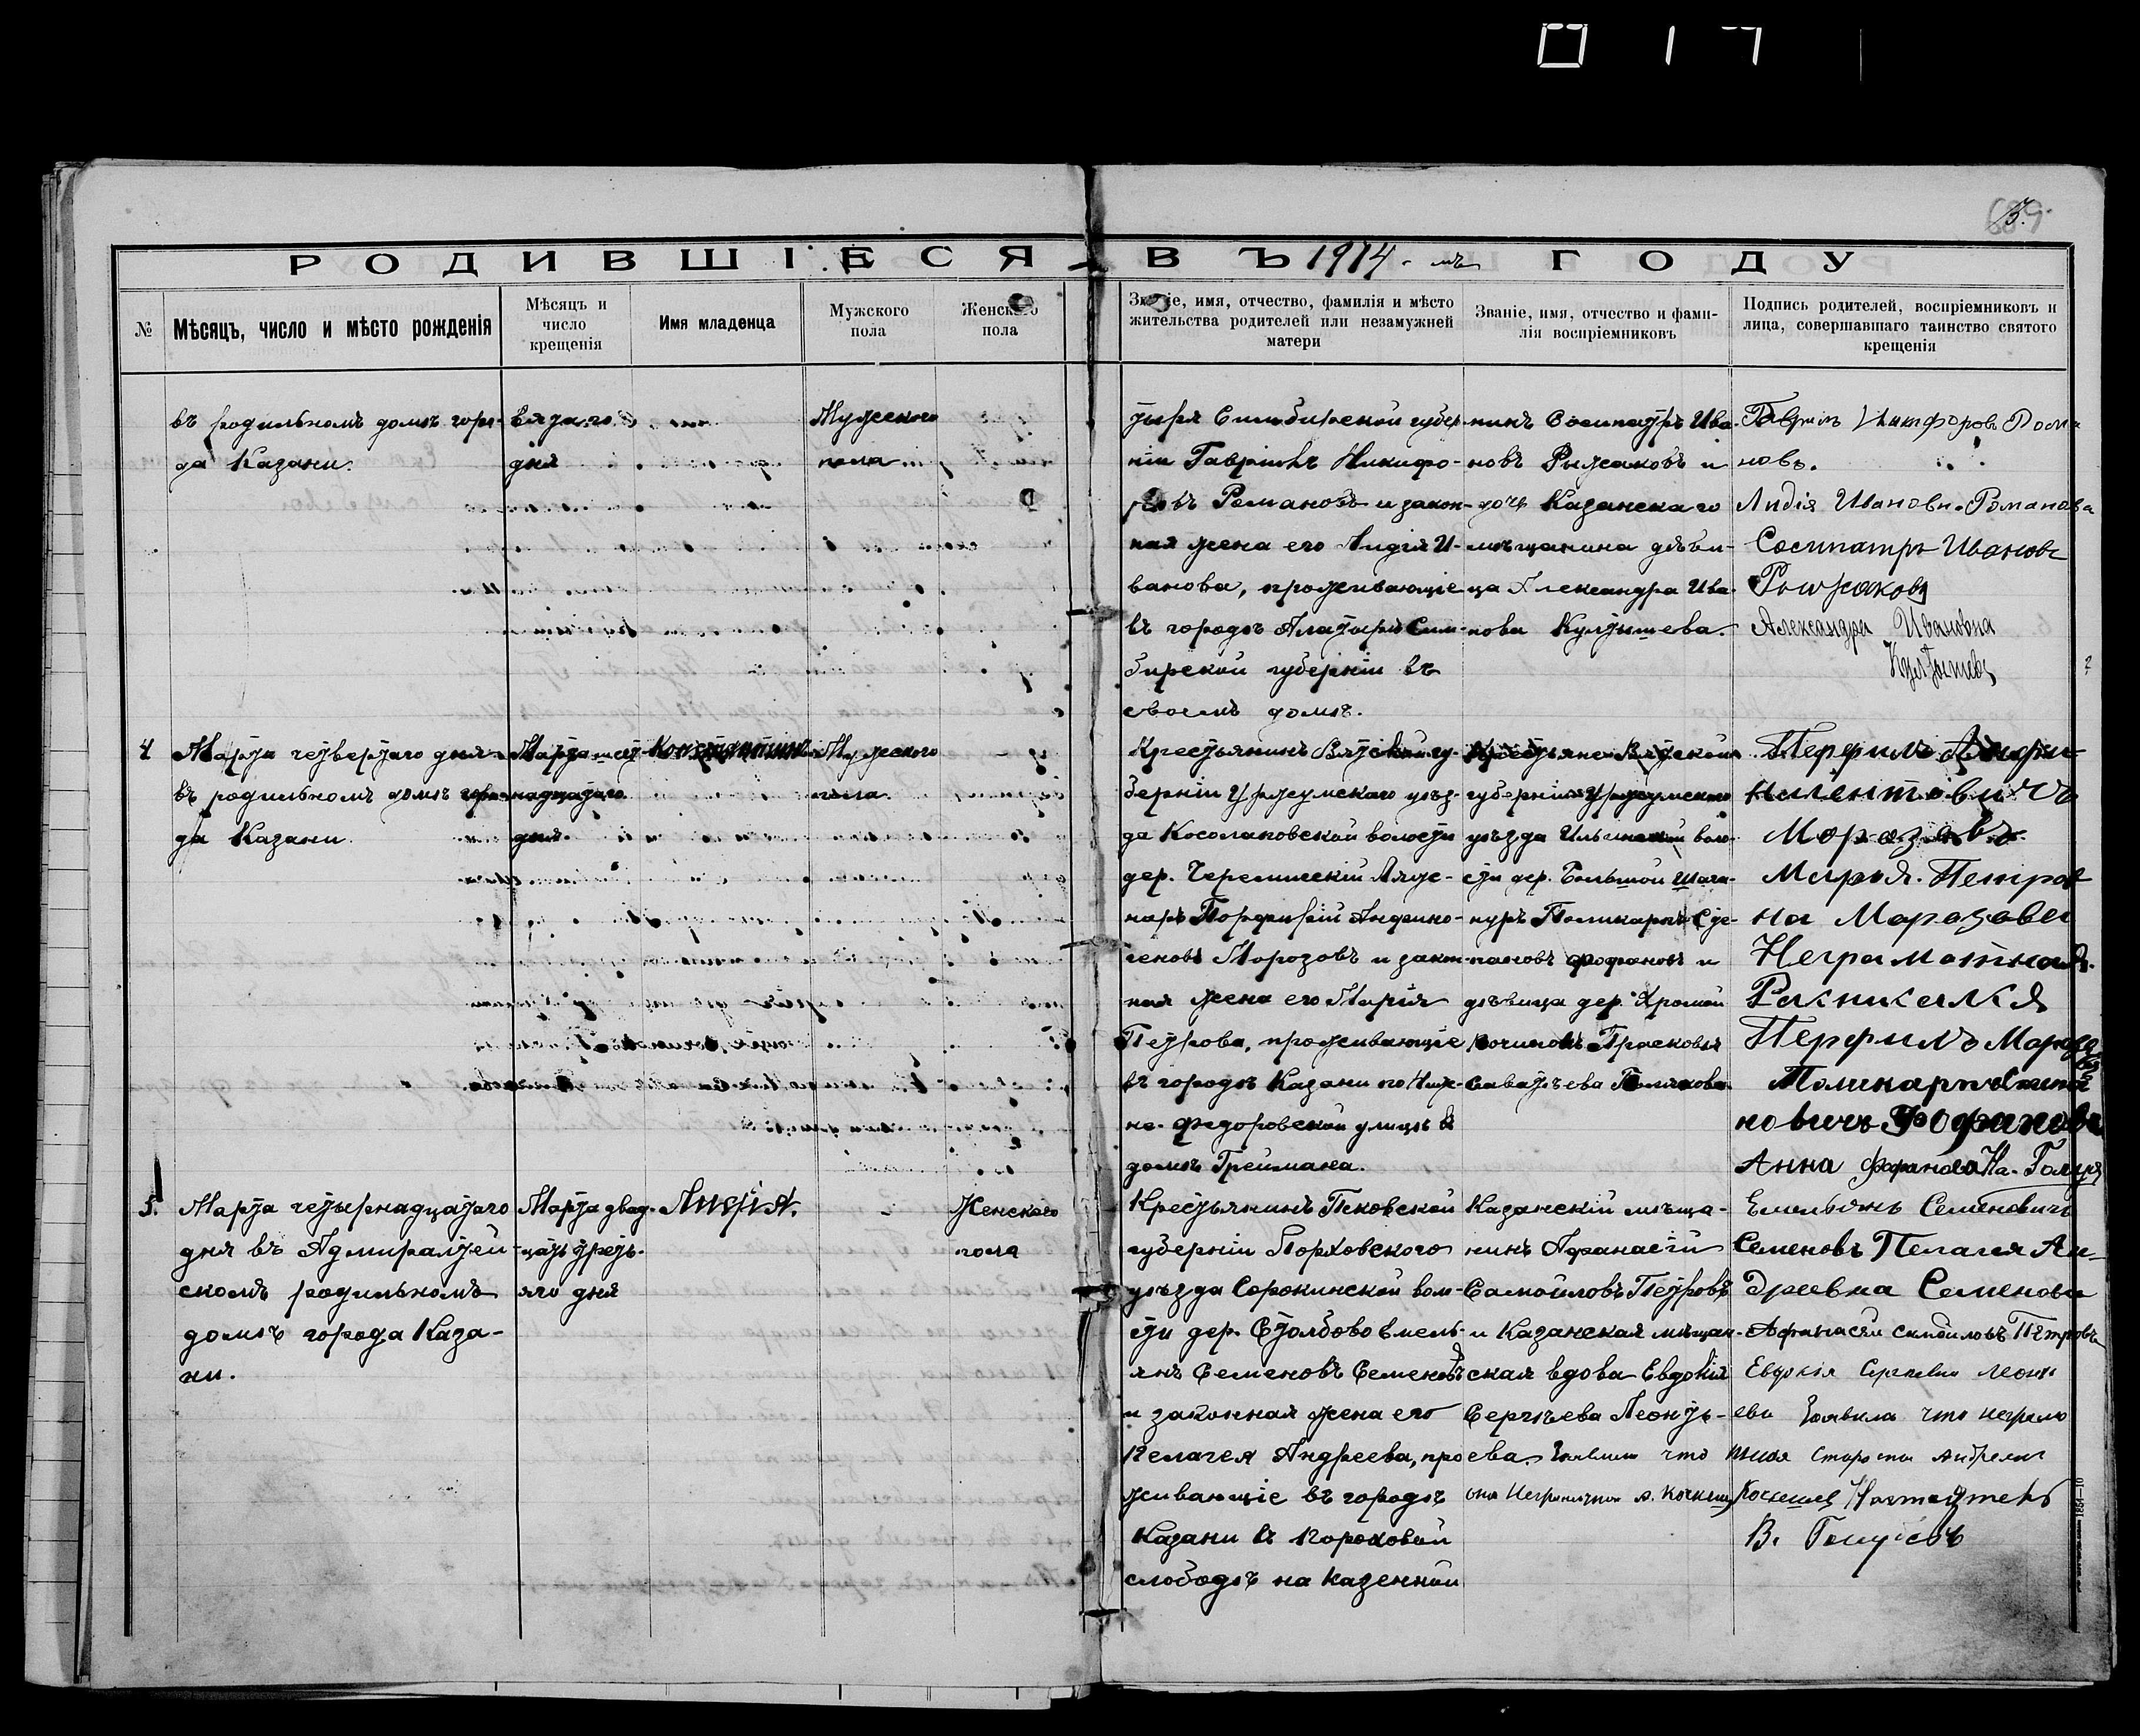 017
689
3.
РОДИВШІЕСЯ ВЪ 1914-мъ ГОДУ
№
Мѣсяцъ, число и мѣсто рожденія
Мѣсяцъ и
число
крещенія
Имя младенца
Мужского
пола
Женского
пола
Званіе, имя, отчество, фамилія и мѣсто
жительства родителей или незамужней
матери
Званіе, имя, отчество и фами-
лія воспріемниковъ
Подпись родителей, воспріемниковъ и
лица, совершавшаго таинство святого
крещенія
въ родильномъ домѣ горо-
да Казани.
вятаго
дня
Мужеского
пола
тыря Симбирской губер-
ніи Гавріилъ Никифо-
ровъ Романовъ и закон-
ная жена его Лидія И-
ванова, проживающіе
въ городѣ Алатырѣ Сим-
бирской губерніи въ
своемъ домѣ.
нинъ Сосипатръ Ива-
новъ Рыжаковъ и
дочь Казанскаго
мѣщанина дѣви-
ца Александра Ива-
нова Култышева.
Гавріилъ Никифоровъ Рома
новъ.
Лидія Ивановн. Романова
Сосипатръ Ивановъ
Рыжаковъ
Александра Ивановна
Култышева
4
Марта четвертаго дня
въ родильномъ домѣ горо-
да Казани
Марта шест-
надцатаго
дня
Константинъ
Мужеского
пола
Крестьянинъ Вятской гу-
берніи Уржумскаго уѣз-
да Косолаповской волости
дер. Черемисскій Ляже-
наръ Порфирій Андино-
геновъ Морозовъ и закон-
ная жена его Марія
Петрова, проживающіе
въ городѣ Казани по Ниж-
не-Федоровской улицѣ въ
домѣ Греймана.
Крестьяне Вятской
губерніи Уржумского
уѣзда Ильинской воло-
сти дер. Большой Шога-
нуръ Поликарпъ Сте-
пановъ Фофановъ и
дѣвица дер. Хромой
Починокъ Прасковья
Саватѣева Полякова.
Перфилъ
Морозовъ.
Мария. Петров
на Марозова
Неграмотная.
Перфилъ Морозовъ
Поликарпъ Степа
новичъ Фофановъ
Анна Фофанова
5.
Марта четырнадцатаго
дня въ Адмиралтей-
скомъ родильномъ
домѣ города Каза-
ни.
Марта двад-
цать треть-
яго дня
Лидія.
Женского
пола
Крестьянинъ Псковской
губерніи Порховского
уѣзда Сорокинской воло-
сти дер. Столбово Емель-
янъ Семеновъ Семеновъ
и законная жена его
Пелагея Андреева, про
живающіе въ городѣ
Казани въ Пороховой
слободѣ на казенной
Казанскій мѣща-
нинъ Афанасій
Самойловъ Петровъ
и Казанская мѣщан-
ская вдова Евдокія
Сергѣева Леонть-
ева. Заявила что
она неграмотная А. Кокшин
Емельянъ Семеновичъ
Семеновъ Пелагея Ан-
дреевна Семенова
Афанасій Самойловъ Петровъ
Евдокія Сергеевна Леонт
ева Заявила что неграмо
тная Староста Андреянъ
Настоятель
В.